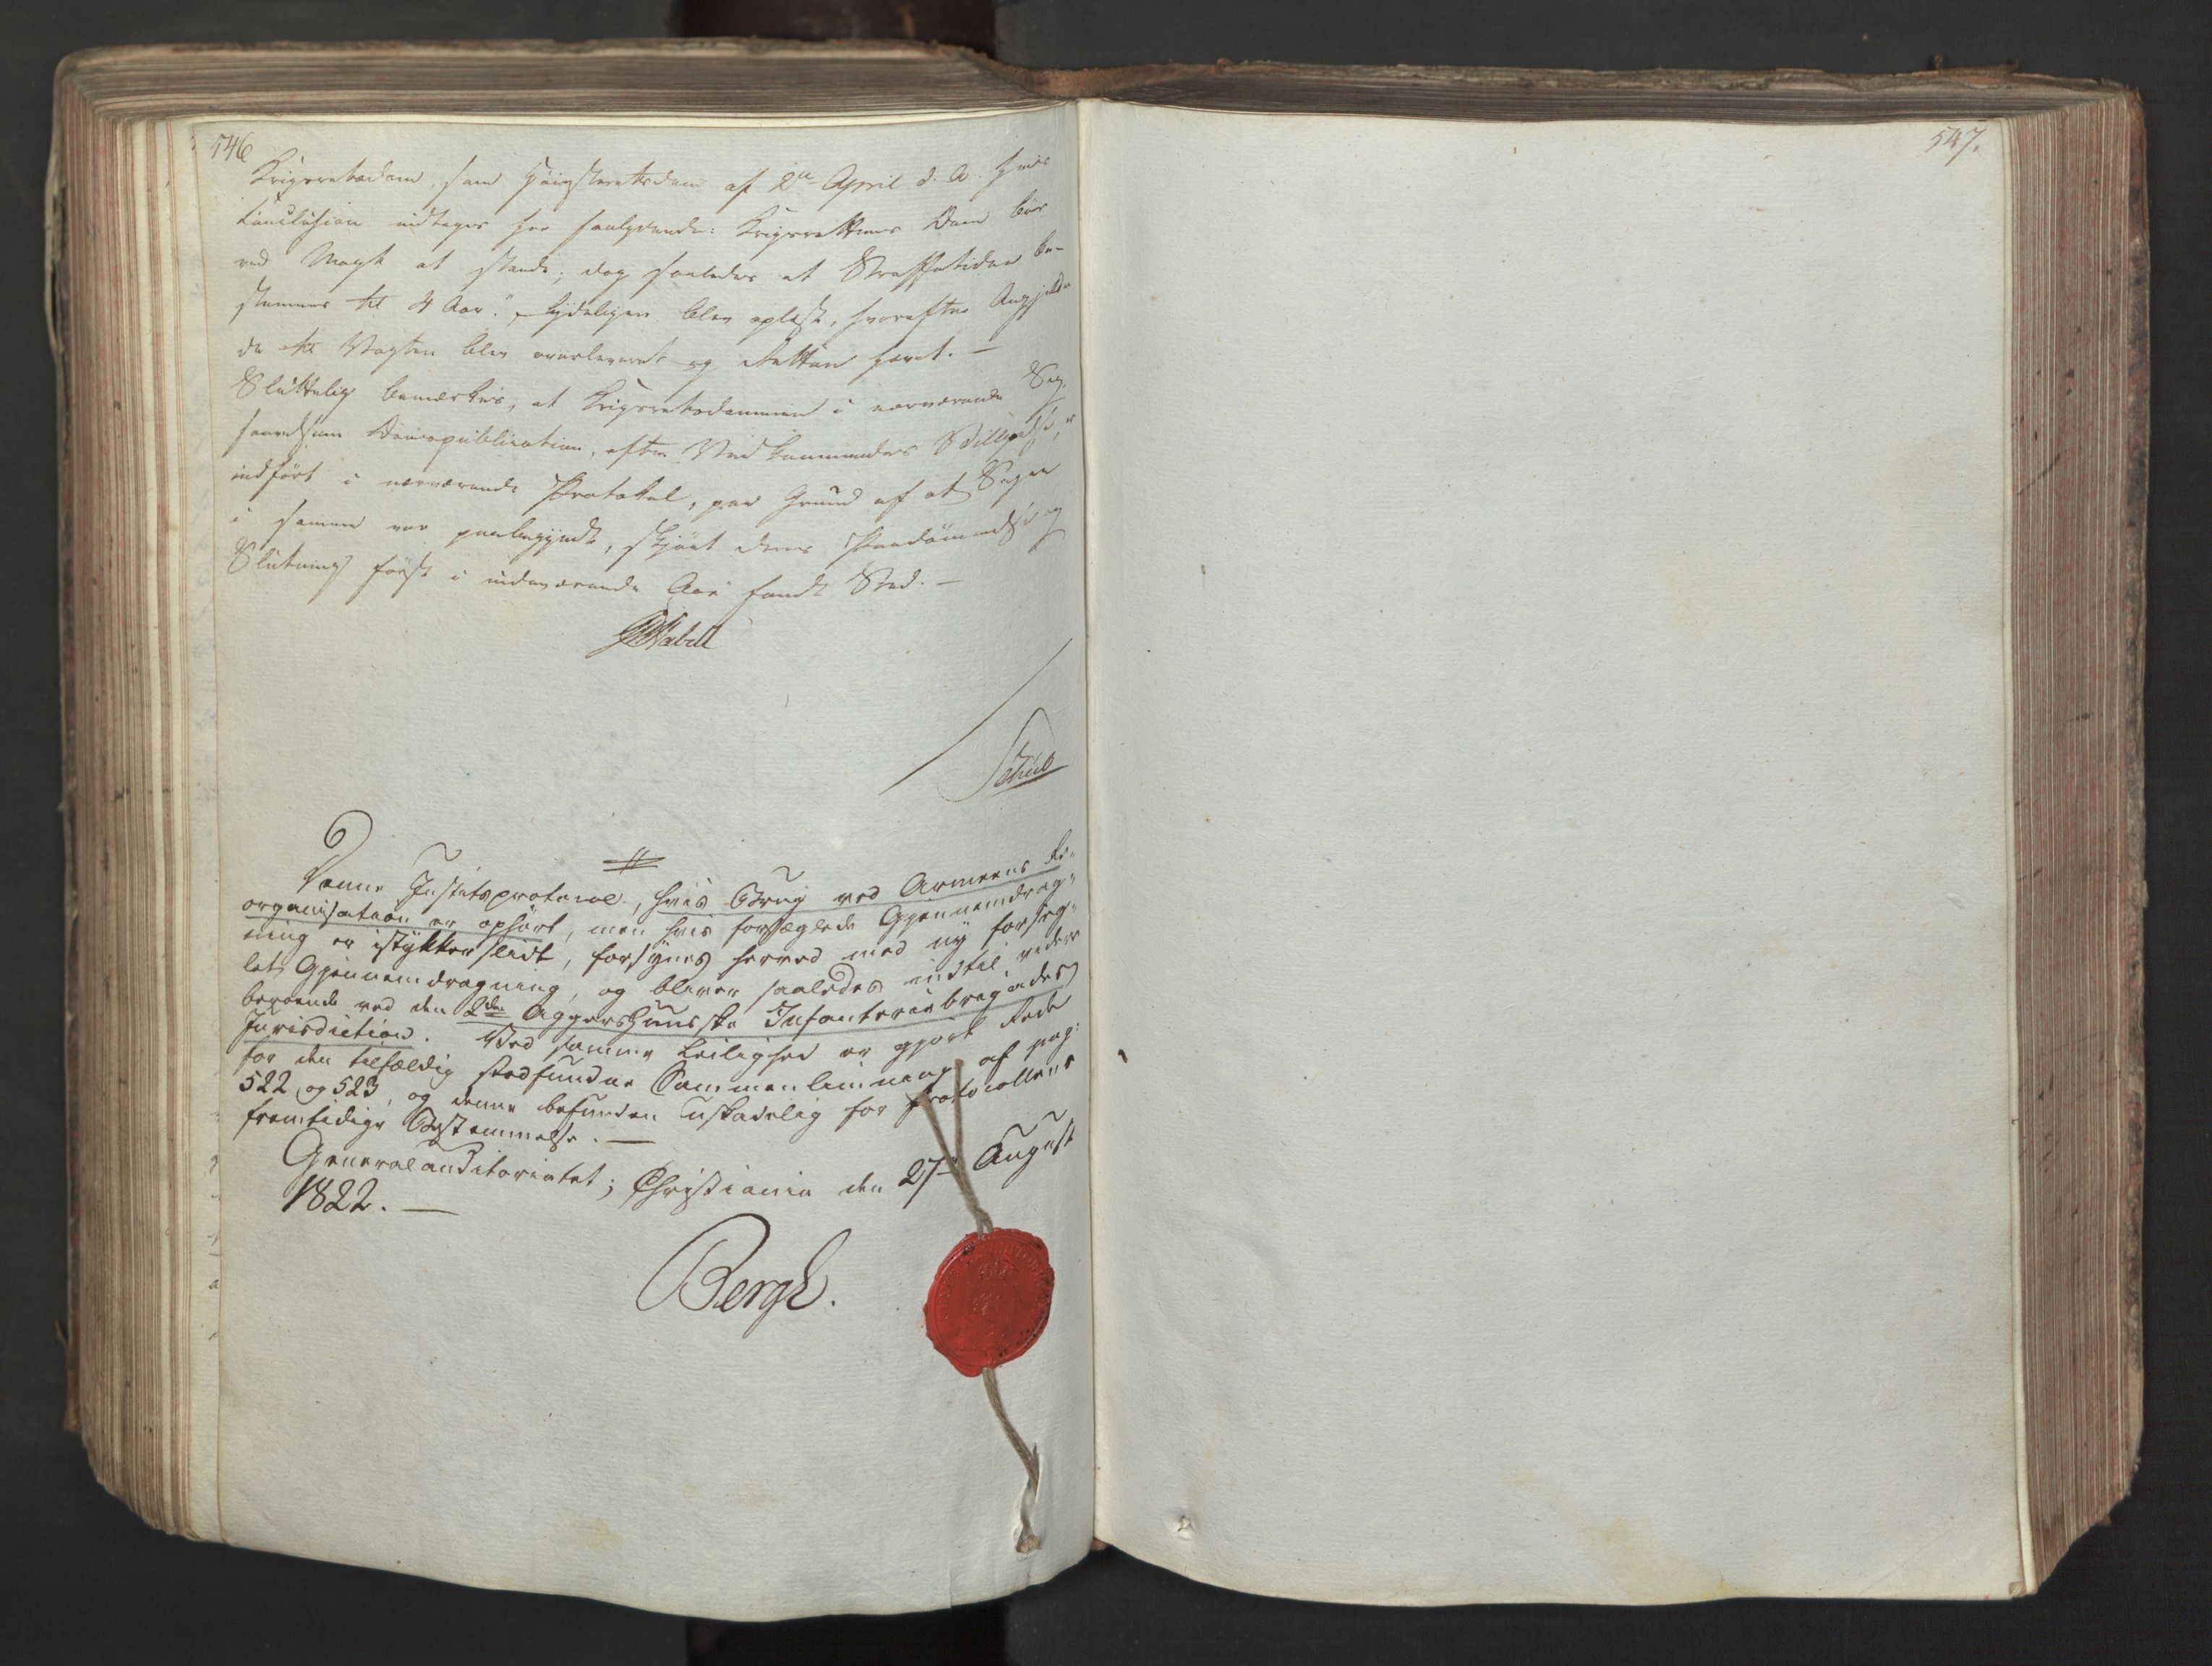 546
Krigsretsdom, som Höiesteretsdom af 2de April d. A. hvis
Conclusion indtages her saalydende: Krigsrettens Dom bör
ved Magt at stande; dog saaledes at Straffetiden be-
stemmes til 4 Aar." tydeligen blev oplæst, hvorefter Angjeld-
de til Vagten blev overleveret og Retten hævet. —
Sluttelig bemærkes, at Krigsretsdommen i nærværende Sag,
saavelsom Domspublication, efter Vedkommendes Billigelse, er
indfört i nærværende Protokol, paa Grund af at Sagen
i samme var paabegyndt, skjönt dens Paadömmelse og
Slutning först i indeværende Aar fandt Sted. —
Denne Justitsprotocol, hvis Brug ved Armeens Re-
organisation er ophört, men hvis forseglede Gjennemdrag-
ning er istykker slidt, forsynes herved med ny forseg-
let Gjennemdragning, og bliver saaledes indtil videre
beroende ved den 2den Aggershuusske Infanteriebrigades
Jurisdiction. Ved samme Leilighed er gjort Rede
for den tilfældig stedfundne Sammenlimning af pag:
522 og 523, og denne befunden uskadelig for Protocollens
fremtidige Bestemmelse. —
Generalauditoriatet; Christiania den 27de August
1822. —
Bergh.
547.